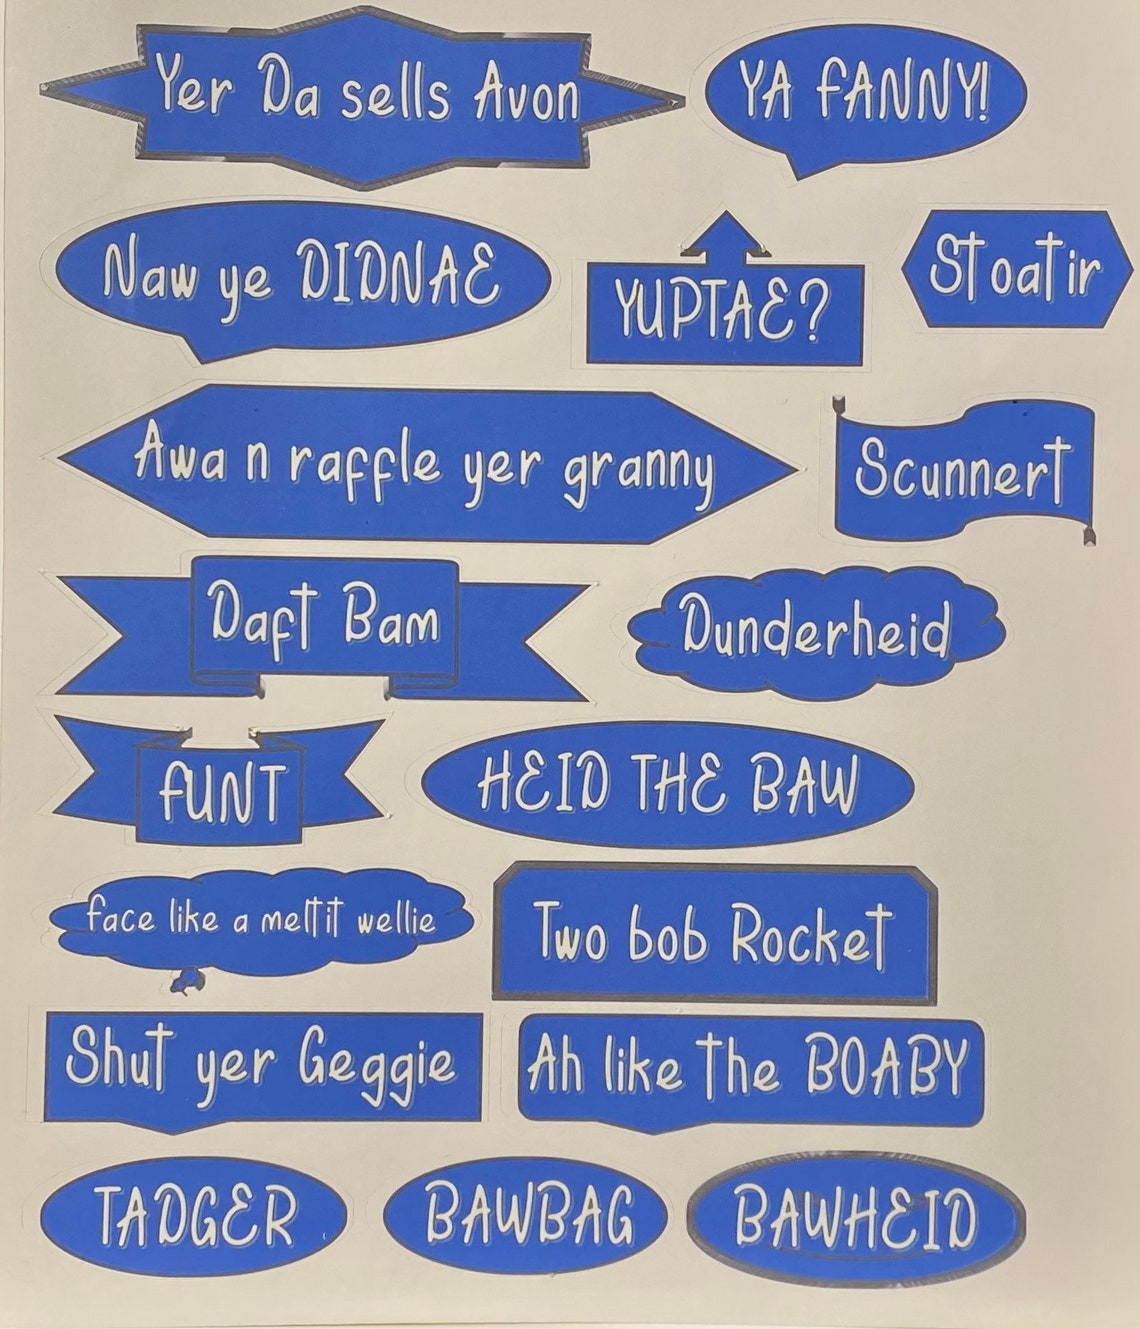 Yer Da sells Avon
YA FANNY!
Naw ye DIDNAE
YUPTAE?
Stoatir
Awa n raffle yer granny
Scunnert
Daft Bam
Dunderheid
FUNT
HEID THE BAW
face like a meltit wellie
Two bob Rocket
Shut yer Geggie
Ah like the BOABY
TADGER
BAWBAG
BAWHEID